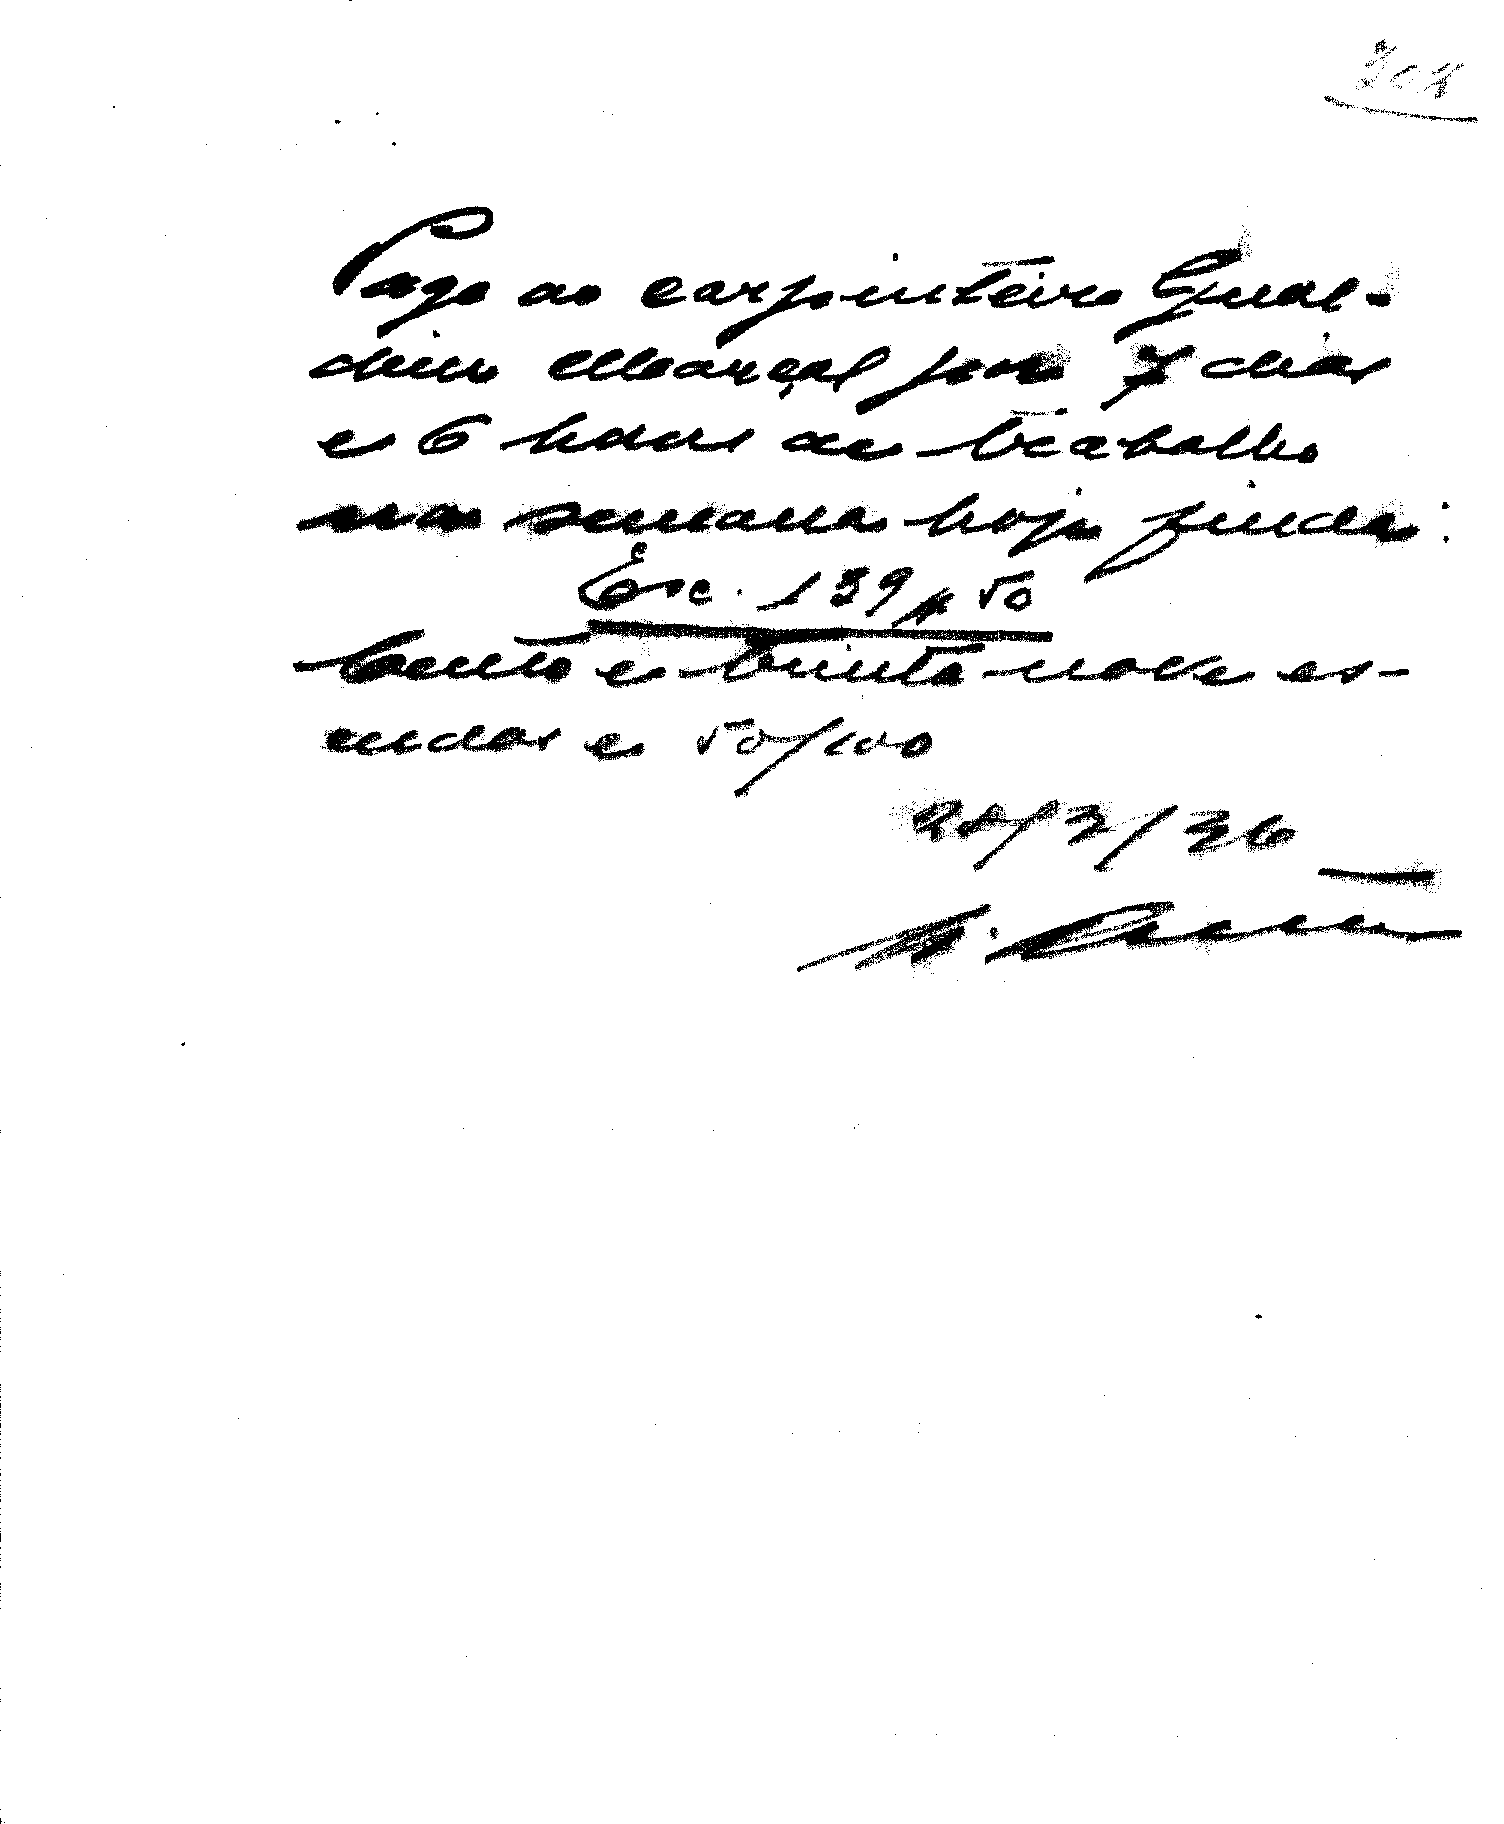 Pago ao carpinteiro Gual-
dino Marçal por 7 dias
e 6 horas de trabalho
na semana hoje finda:
Esc. 139$50
Cento e trinta nove es-
cudos e 50/100
/2/36